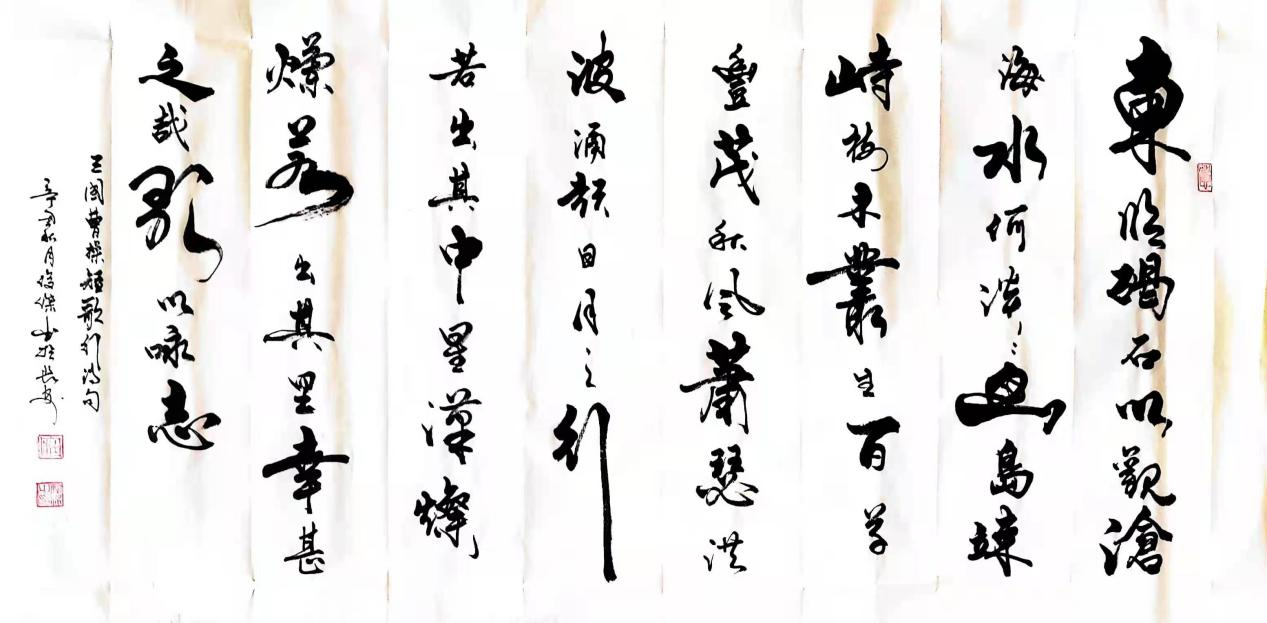 東臨碣石以觀滄
海水何澹〻山島竦
峙樹木叢生百草
豐茂秋風蕭瑟洪
波涌起日月之行
若出其中星漢燦
爛若出其里幸甚
之哉歌以咏志
三国曹操短歌行诗句
辛丑秋月俊傑书於長安